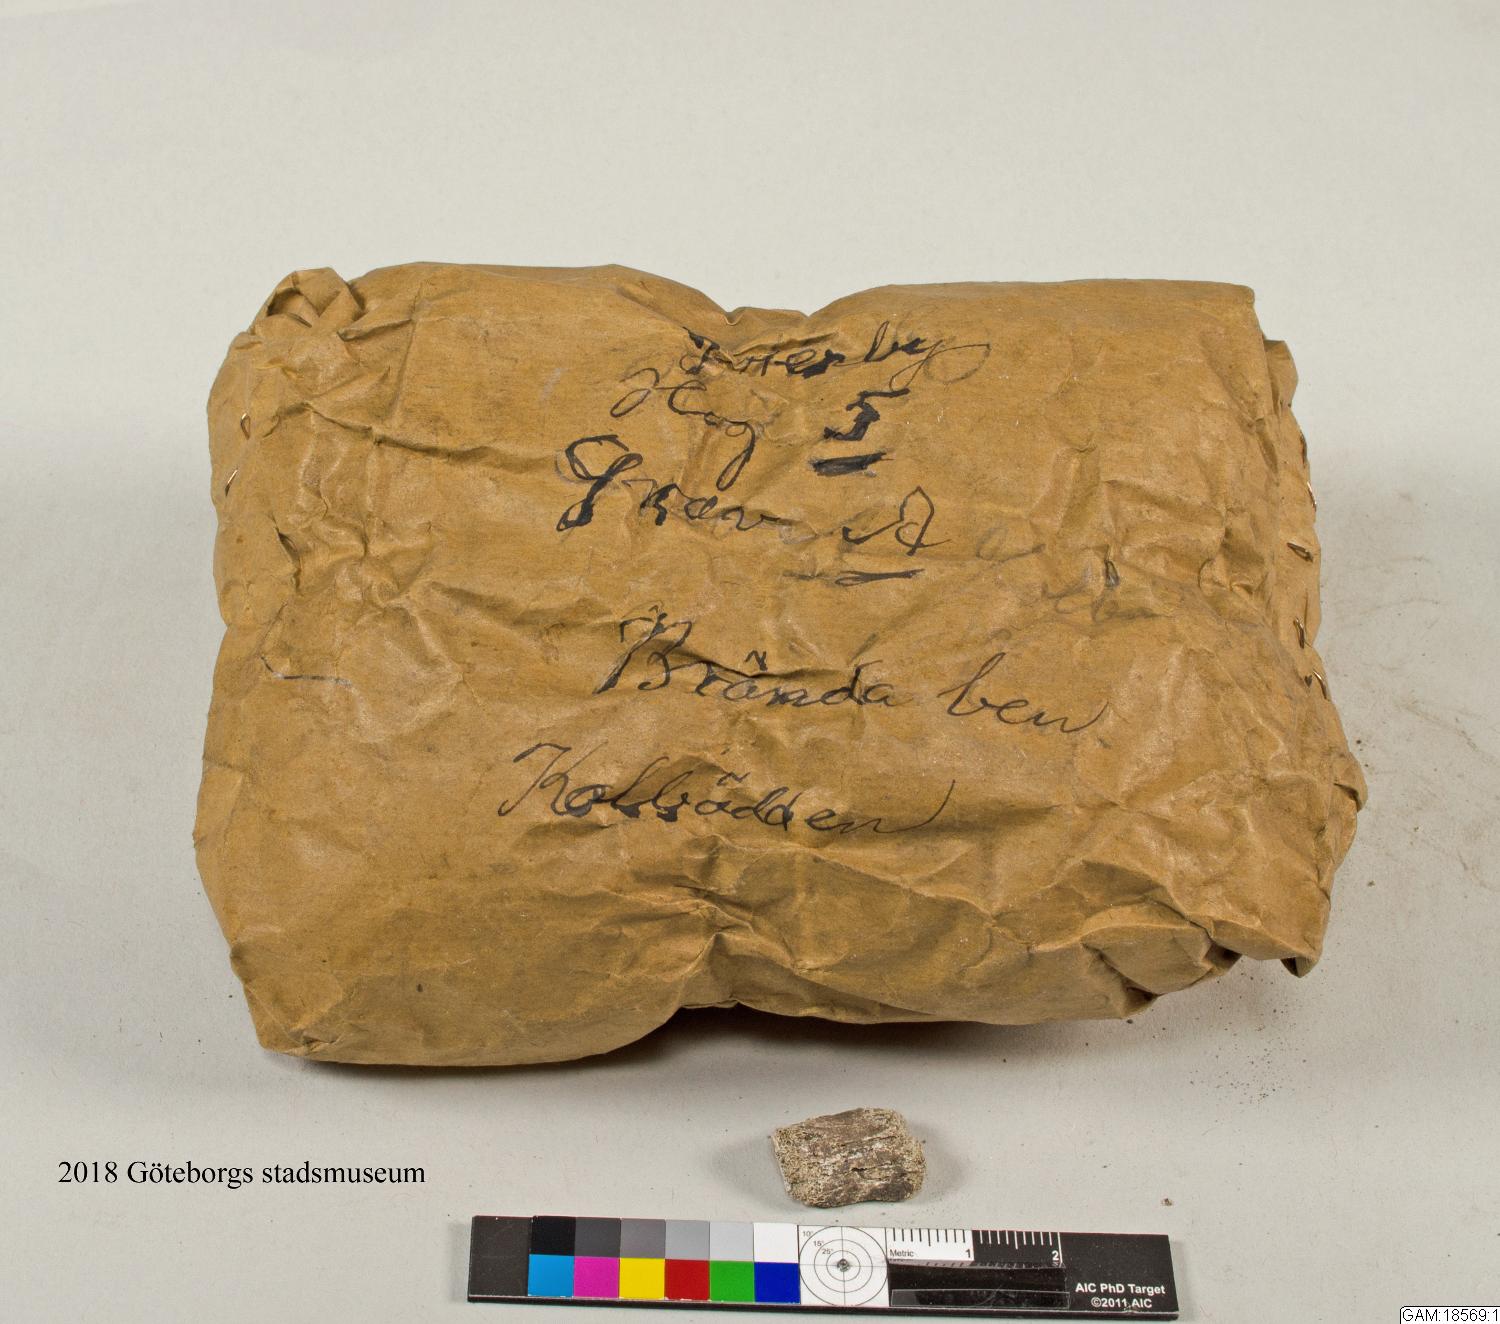 Hög 5
Grav A
Brända ben
Kolbädden
2018 Göteborgs stadsmuseum
10°
15°
25°
Metric 1 2
AIC PhD Target
©2011 AIC
GAM:18569:1